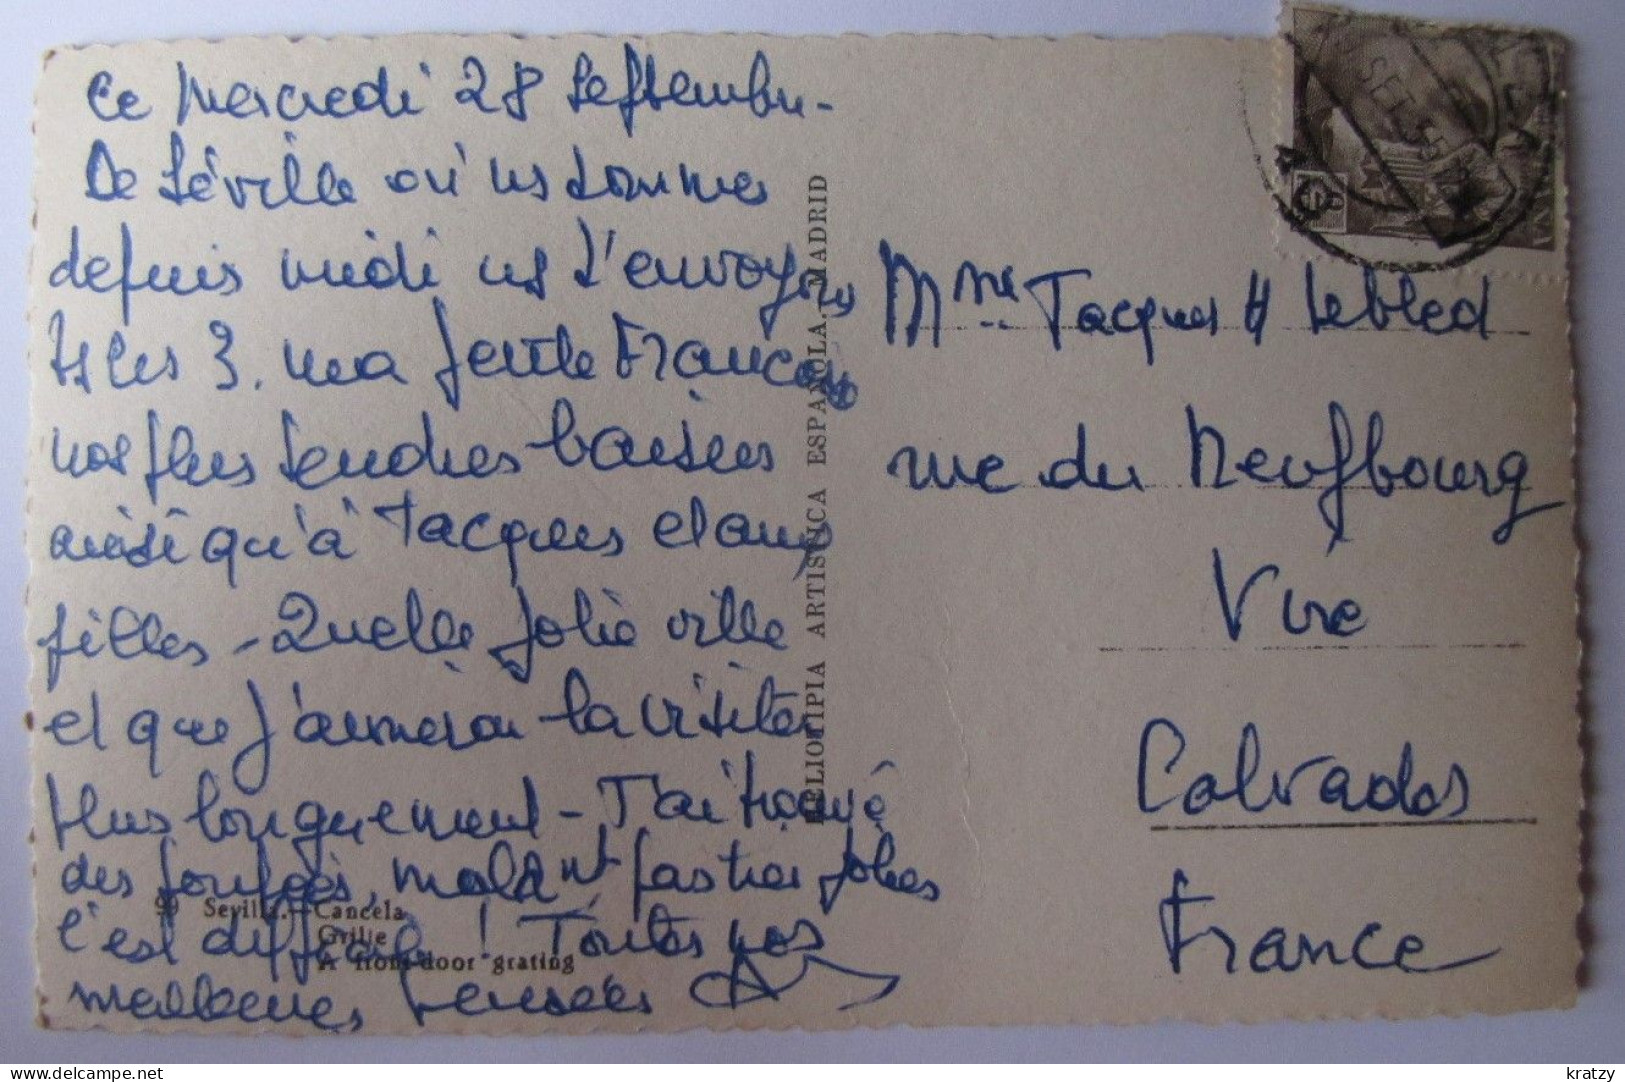 Ce Mercredi 28 Septembre -
De Séville où ns sommes
depuis midi ns t'envoyons
ts les 3, ma gentille Françoise
nos plus tendres baisers
ainsi qu'à Jacques et aux
filles - Quelle jolie ville
et que j'aimerai la visiter
plus longuement - J'ai trouvé
des poupées, malh^nt pas très jolies
c'est difficile ! Toutes nos
meilleures pensées
99 Sevilla.—Cancela
Grille
A front-door grating
HELIOTIPIA ARTISTICA ESPAÑOLA, MADRID
SET. 55
Mme Jacques H Lebled
rue du Neufbourg
Vire
Calvados
France
kratzy
delcampe.net